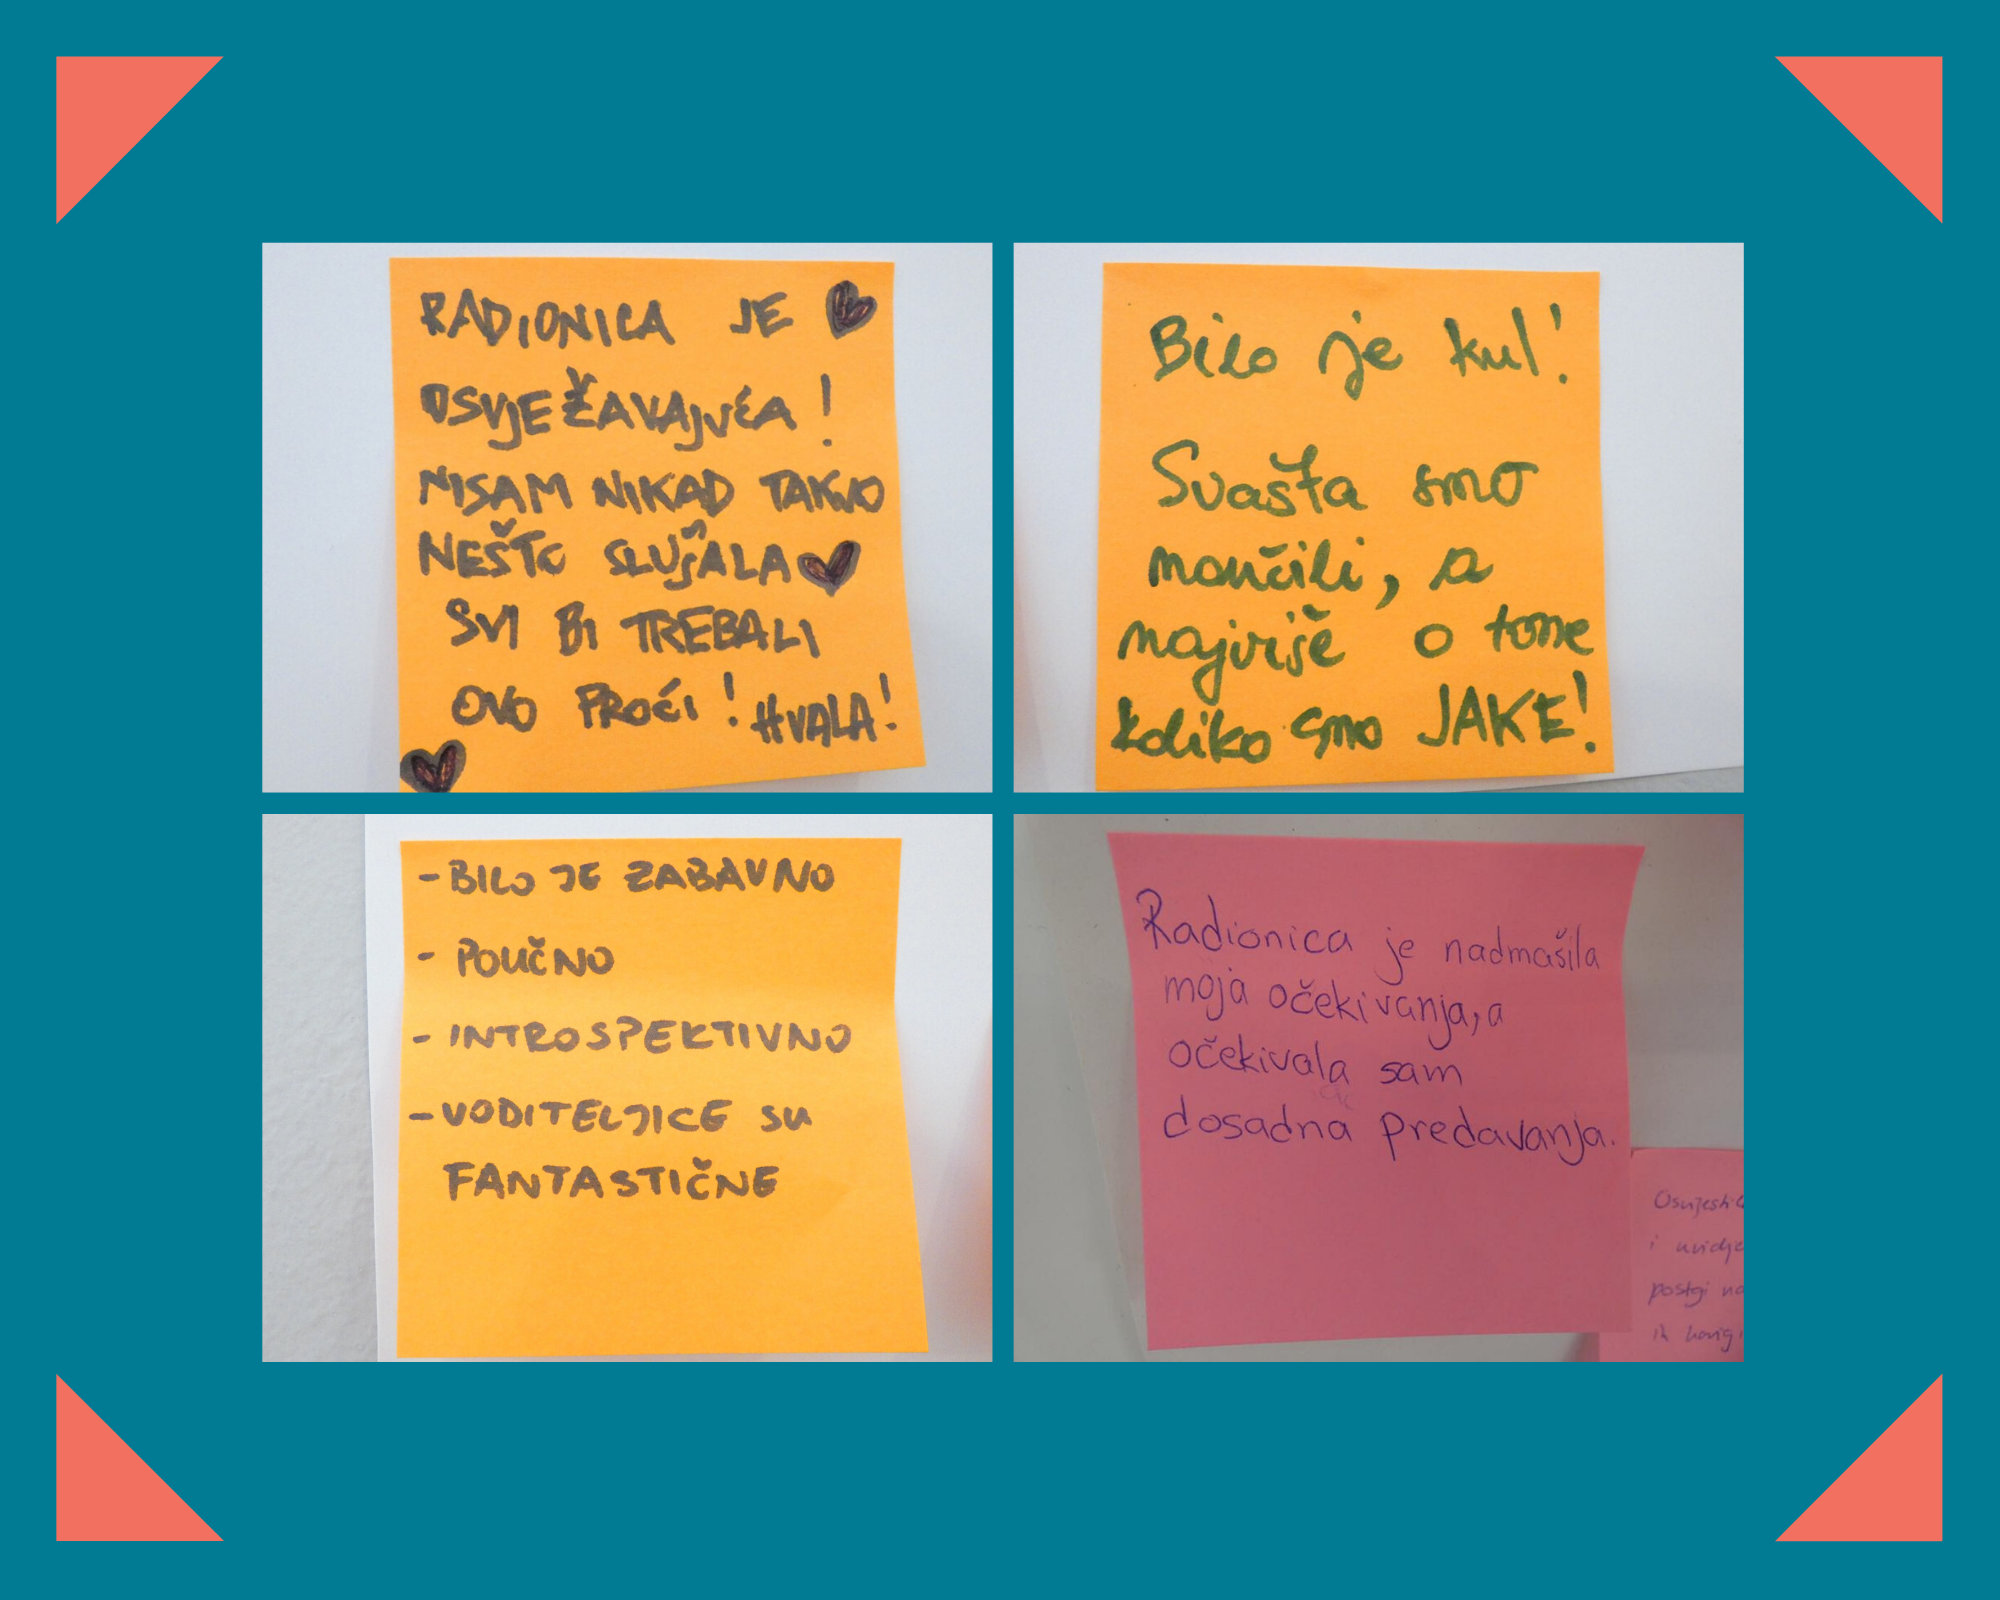 RADIONICA JE
OSVJEŽAVAJUĆA!
NISAM NIKAD TAKVO
NEŠTO SLUŠALA
SVI BI TREBALI
OVO PROĆI! HVALA!
Bilo je kul!
Svašta smo
naučili, a
najviše o tome
koliko smo JAKE!
- BILO JE ZABAVNO
- POUČNO
- INTROSPEKTIVNO
- VODITELJICE SU
FANTASTIČNE
Radionica je nadmašila
moja očekivanja, a
očekivala sam
dosadna predavanja.
i